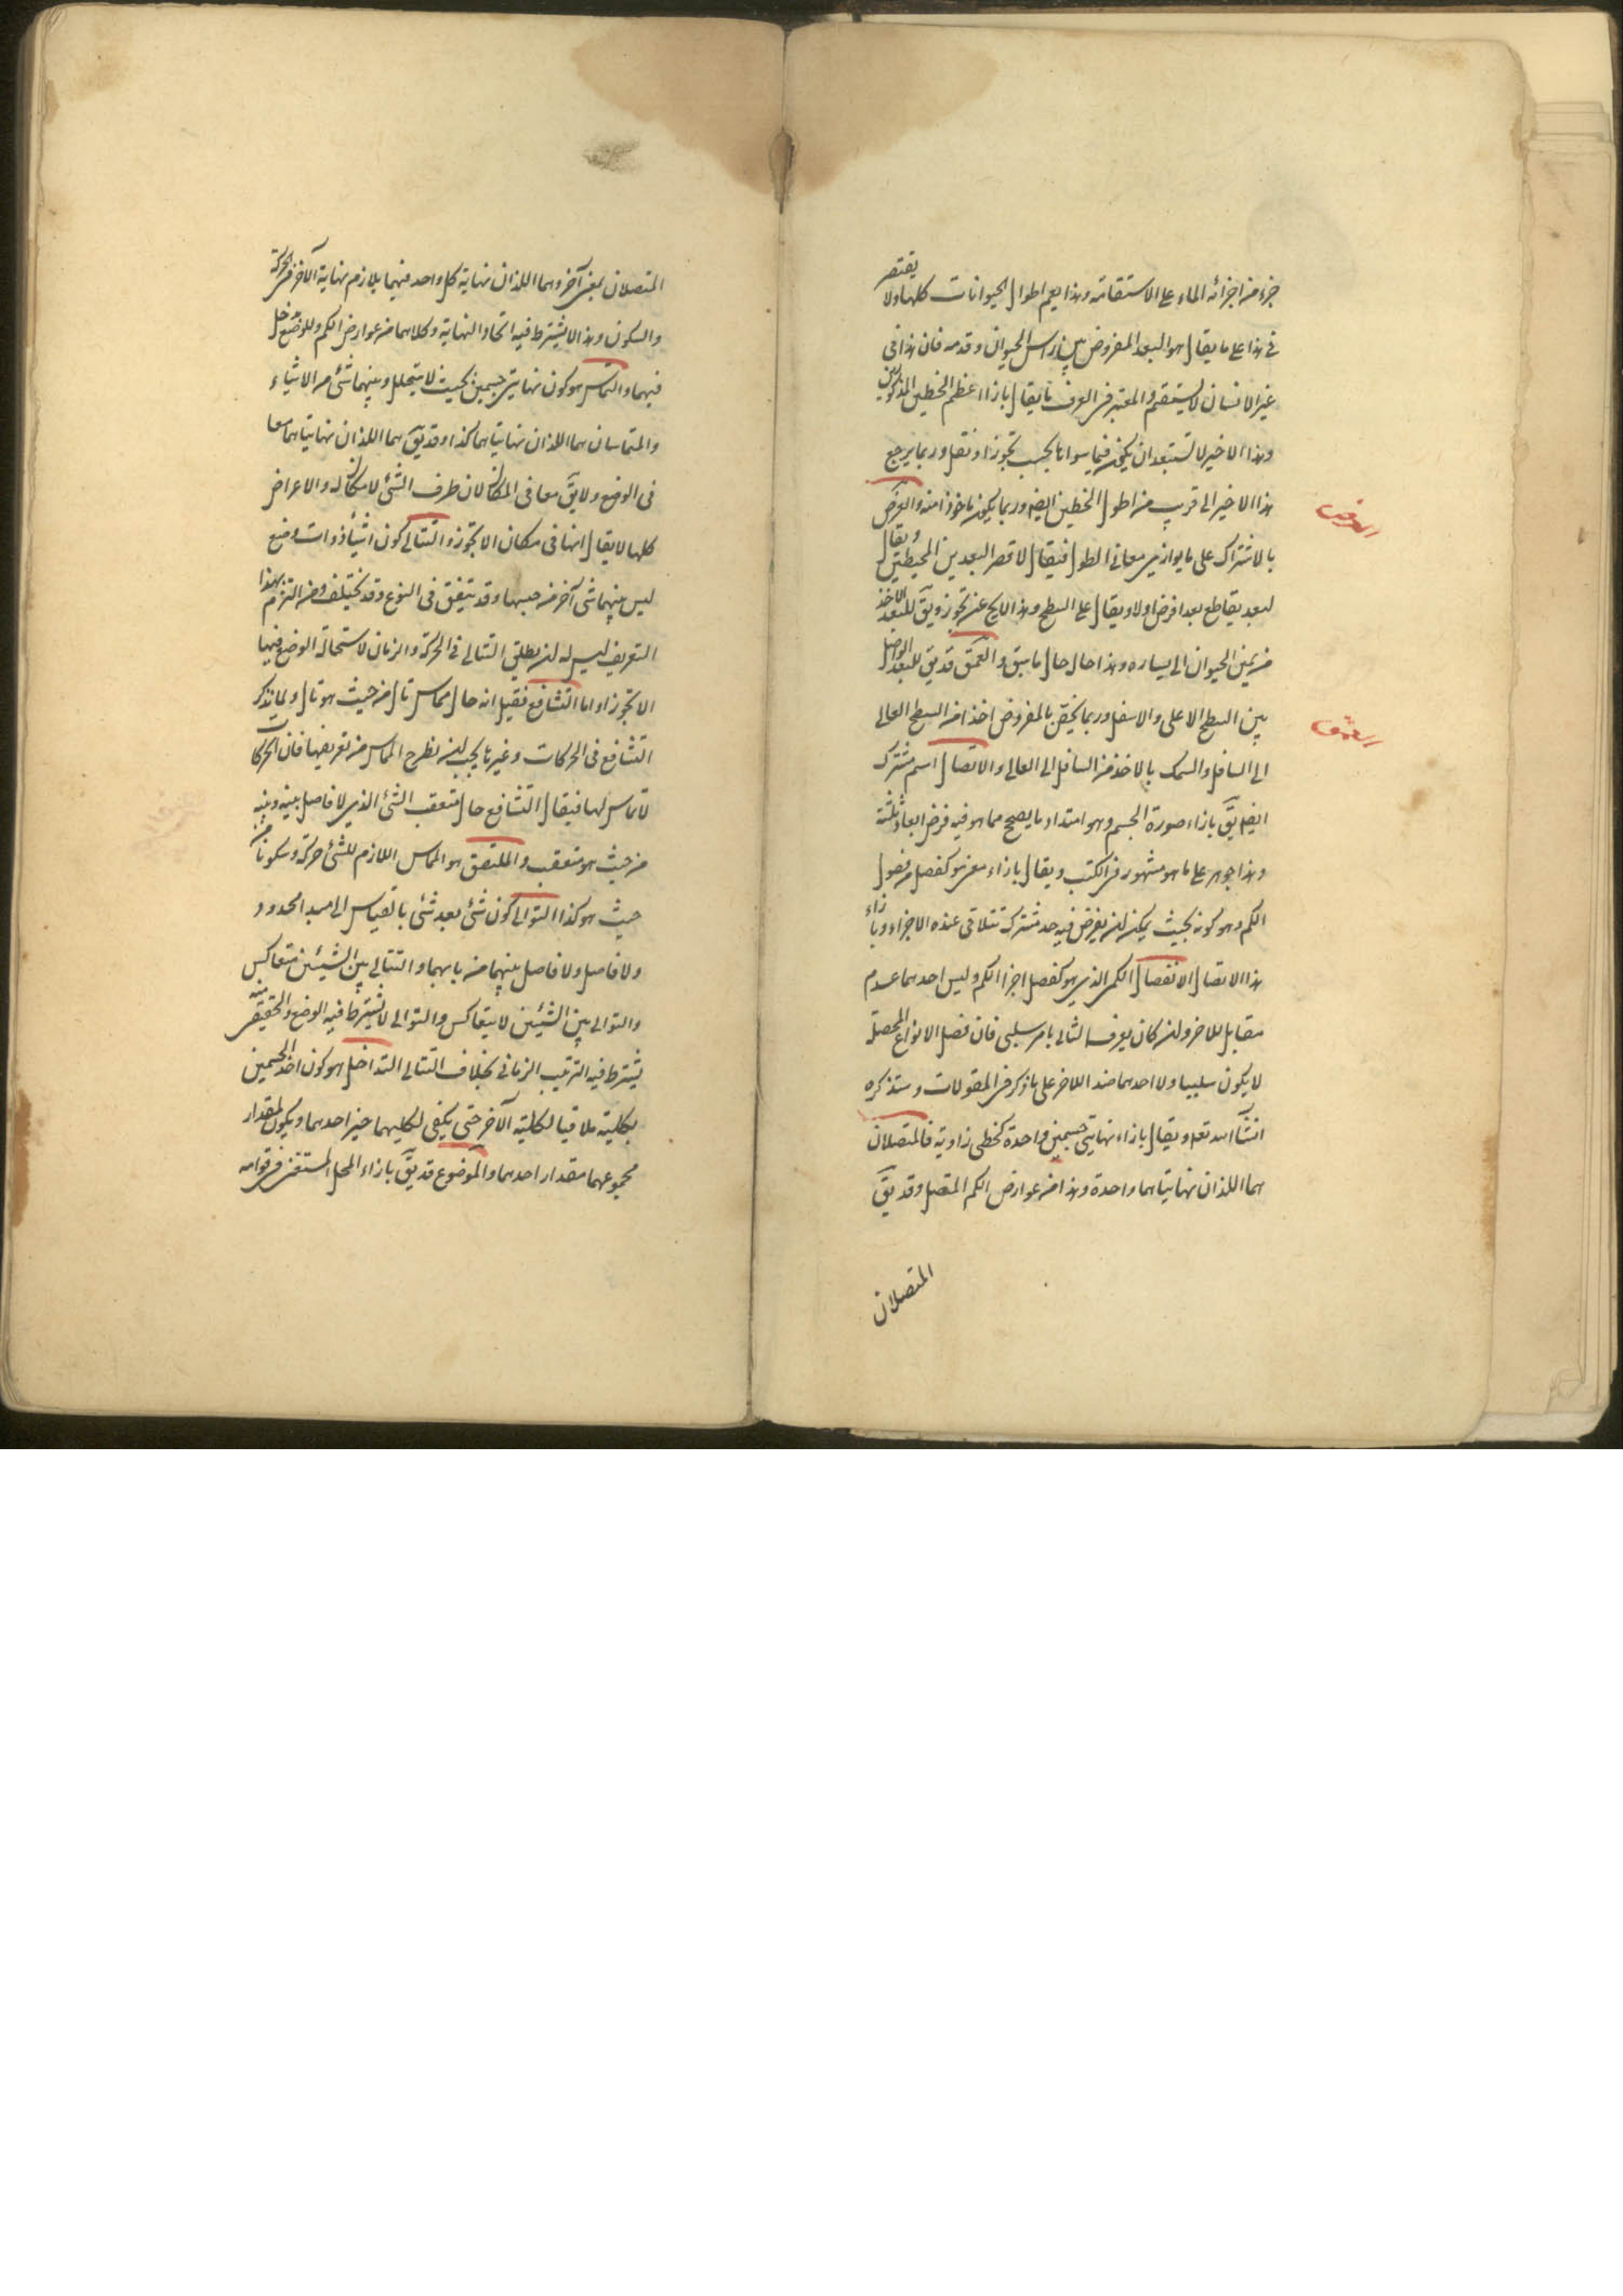 جزء من اجزائه الماء على الاستقامة وهذا يعم اطوال الحيوانات كلها ولا يقتصر
فى هذا على ما يقال هو البعد المفروض بين راس الحيوان وقدمه فان هذا فى
غير الانسان لا يستقيم والمعتبر فى العرف ما يقال بازاء اعظم الخطين المذكورين
وهذا الاخير لا تستبعد ان يكون فيما سواها بحسب تجوز او نقل وربما يرجع
هذا الاخير الى قريب من اطول الخطين ايضا وربما يكون ماخوذا منه والعرض
العرض
بالاشتراك على ما يوازى معانى الطول فيقال لاقصر البعدين المحيطين ويقال
لبعد يقاطع بعدا فرض اولا ويقال على السطح وهذا لا يخ عن تجوز ويق للبعد الاخذ
من يمين الحيوان الى يساره وهذا حال حال ما سبق والعمق قد يق للبعد الواصل
بين السطح الاعلى والاسفل وربما يخص بالمفروض اخذا من السطح العالى
العمق
الى السافل والسمك بالاخذ من السافل الى العالى والاتصال اسم مشترك
ايضا يق بازاء صورة الجسم وهو امتداد ما يصح مما هو فيه فرض ابعاد ثلثة
وهذا جوهر على ما هو مشهور فى الكتب ويقال بازاء معنى هو كفصل من فصول
الكم وهو كونه بحيث يمكن ان يفرض فيه حد مشترك تتلاقى عنده الاجزاء وبازاء
هذا الاتصال الانفصال الكمى الذى هو كفصل اجزاء الكم وليس احدهما عدم
مقابل للاخر وان كان يعرف الثانى بامر سلبى فان فصل الانواع المحصلة
لا يكون سلبيا ولا احدهما ضد اللاخر على ما ذكر فى المقولات وستذكره
انشآ الله تعه ويقال بازاء نهايتى جسمين واحدة كخطى زاوية فالمتصلان
هما اللذان نهايتاهما واحدة وهذا من عوارض الكم المتصل وقد يق
المتصلان
المتصلان بمعنى آخر وهما اللذان نهاية كل واحد منهما يلازم نهاية الآخر فى الحركة
والسكون وهذا لا يشترط فيه اتحاد النهاية وكلاهما من عوارض الكم وللوضع دخل
فيهما والتماس هو كون نهايتى جسمين بحيث لا يتخلل بينهما شئ من الاشياء
والمتماسان هما اللذان نهايتاهما كذا وقد يق هما اللذان نهايتاهما معا
فى الوضع ولا يق معا فى المكان لان طرف الشئ لا مكان له والاعراض
كلها لا يقال انها فى مكان الا بتجوز والتتالى كون اشياء ذوات وضع
ليس بينهما شئ آخر من جنسها وقد يتفق فى النوع وقد يختلف ومن التزم بهذا
التعريف ليس له ان يطلق التتالى فى الحركة والزمان لاستحالة الوضع فيها
الا بتجوز اما التشافع فقيل انه حال مماس تال من حيث هو تال ولما يذكر
التشافع فى الحركات وغيرها يجب ان يطرح المماس من تعريفها فان الحركات
لا تماس لها فيقال التشافع حال متعقب الشئ الذى لا فاصل بينه وبينه
من حيث هو متعقب والملتصق هو المماس اللازم للشئ حركة وسكونا من
حيث هو كذا التوالى كون شئ بعد شئ بالقياس الى مبدا محدود
ولا فاصل ولا فاصل بينهما من بابهما والتتالى بين الشيئين متعاكس
والتوالى بين الشيئين لا يتعاكس والتوالى لا يشترط فيه الوضع والحقيقى منه
يشترط فيه الترتيب الزمانى بخلاف التتالى التداخل هو كون احد الجسمين
بكليته ملاقيا لكلية الآخر حتى يكفى لكليهما حيز احدهما ويكون مقدار
مجموعهما مقدار احدهما والموضوع قد يق بازاء المحل المستغنى فى قوامه